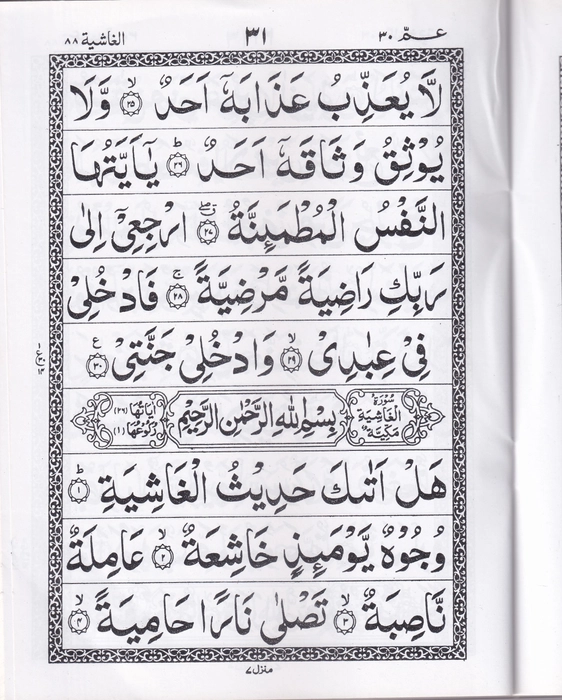 عمّ ٣٠ ٣١ الغاشية ٨٨
لَّا يُعَذِّبُ عَذَابَهٗۤ اَحَدٌ ۙ‏﴿۲۵﴾ وَّلَا
يُوْثِقُ وَثَاقَهٗۤ اَحَدٌ ؕ‏﴿۲۶﴾ يٰۤاَيَّتُهَا
النَّفْسُ الْمُطْمَئِنَّةُ ۖۗ‏﴿۲۷﴾ ارْجِعِىْۤ اِلٰى
رَبِّكِ رَاضِيَةً مَّرْضِيَّةً ۚ‏﴿۲۸﴾ فَادْخُلِىْ
فِىْ عِبٰدِىْ ۙ‏﴿۲۹﴾ وَادْخُلِىْ جَنَّتِىْ ﴿۳۰﴾ ع
سُوْرَةُ الْغَاشِيَةِ مَكِّيَّةٌ بِسْمِ اللهِ الرَّحْمٰنِ الرَّحِيْمِ اٰيَاتُهَا (۲۶) رُكُوْعُهَا (۱)
هَلْ اَتٰٮكَ حَدِيْثُ الْغَاشِيَةِ ؕ‏﴿۱﴾
وُجُوْهٌ يَّوْمَئِذٍ خَاشِعَةٌ ۙ‏﴿۲﴾ عَامِلَةٌ
نَّاصِبَةٌ ۙ‏﴿۳﴾ تَصْلٰى نَارًا حَامِيَةً ۙ‏﴿۴﴾
منزل ٧